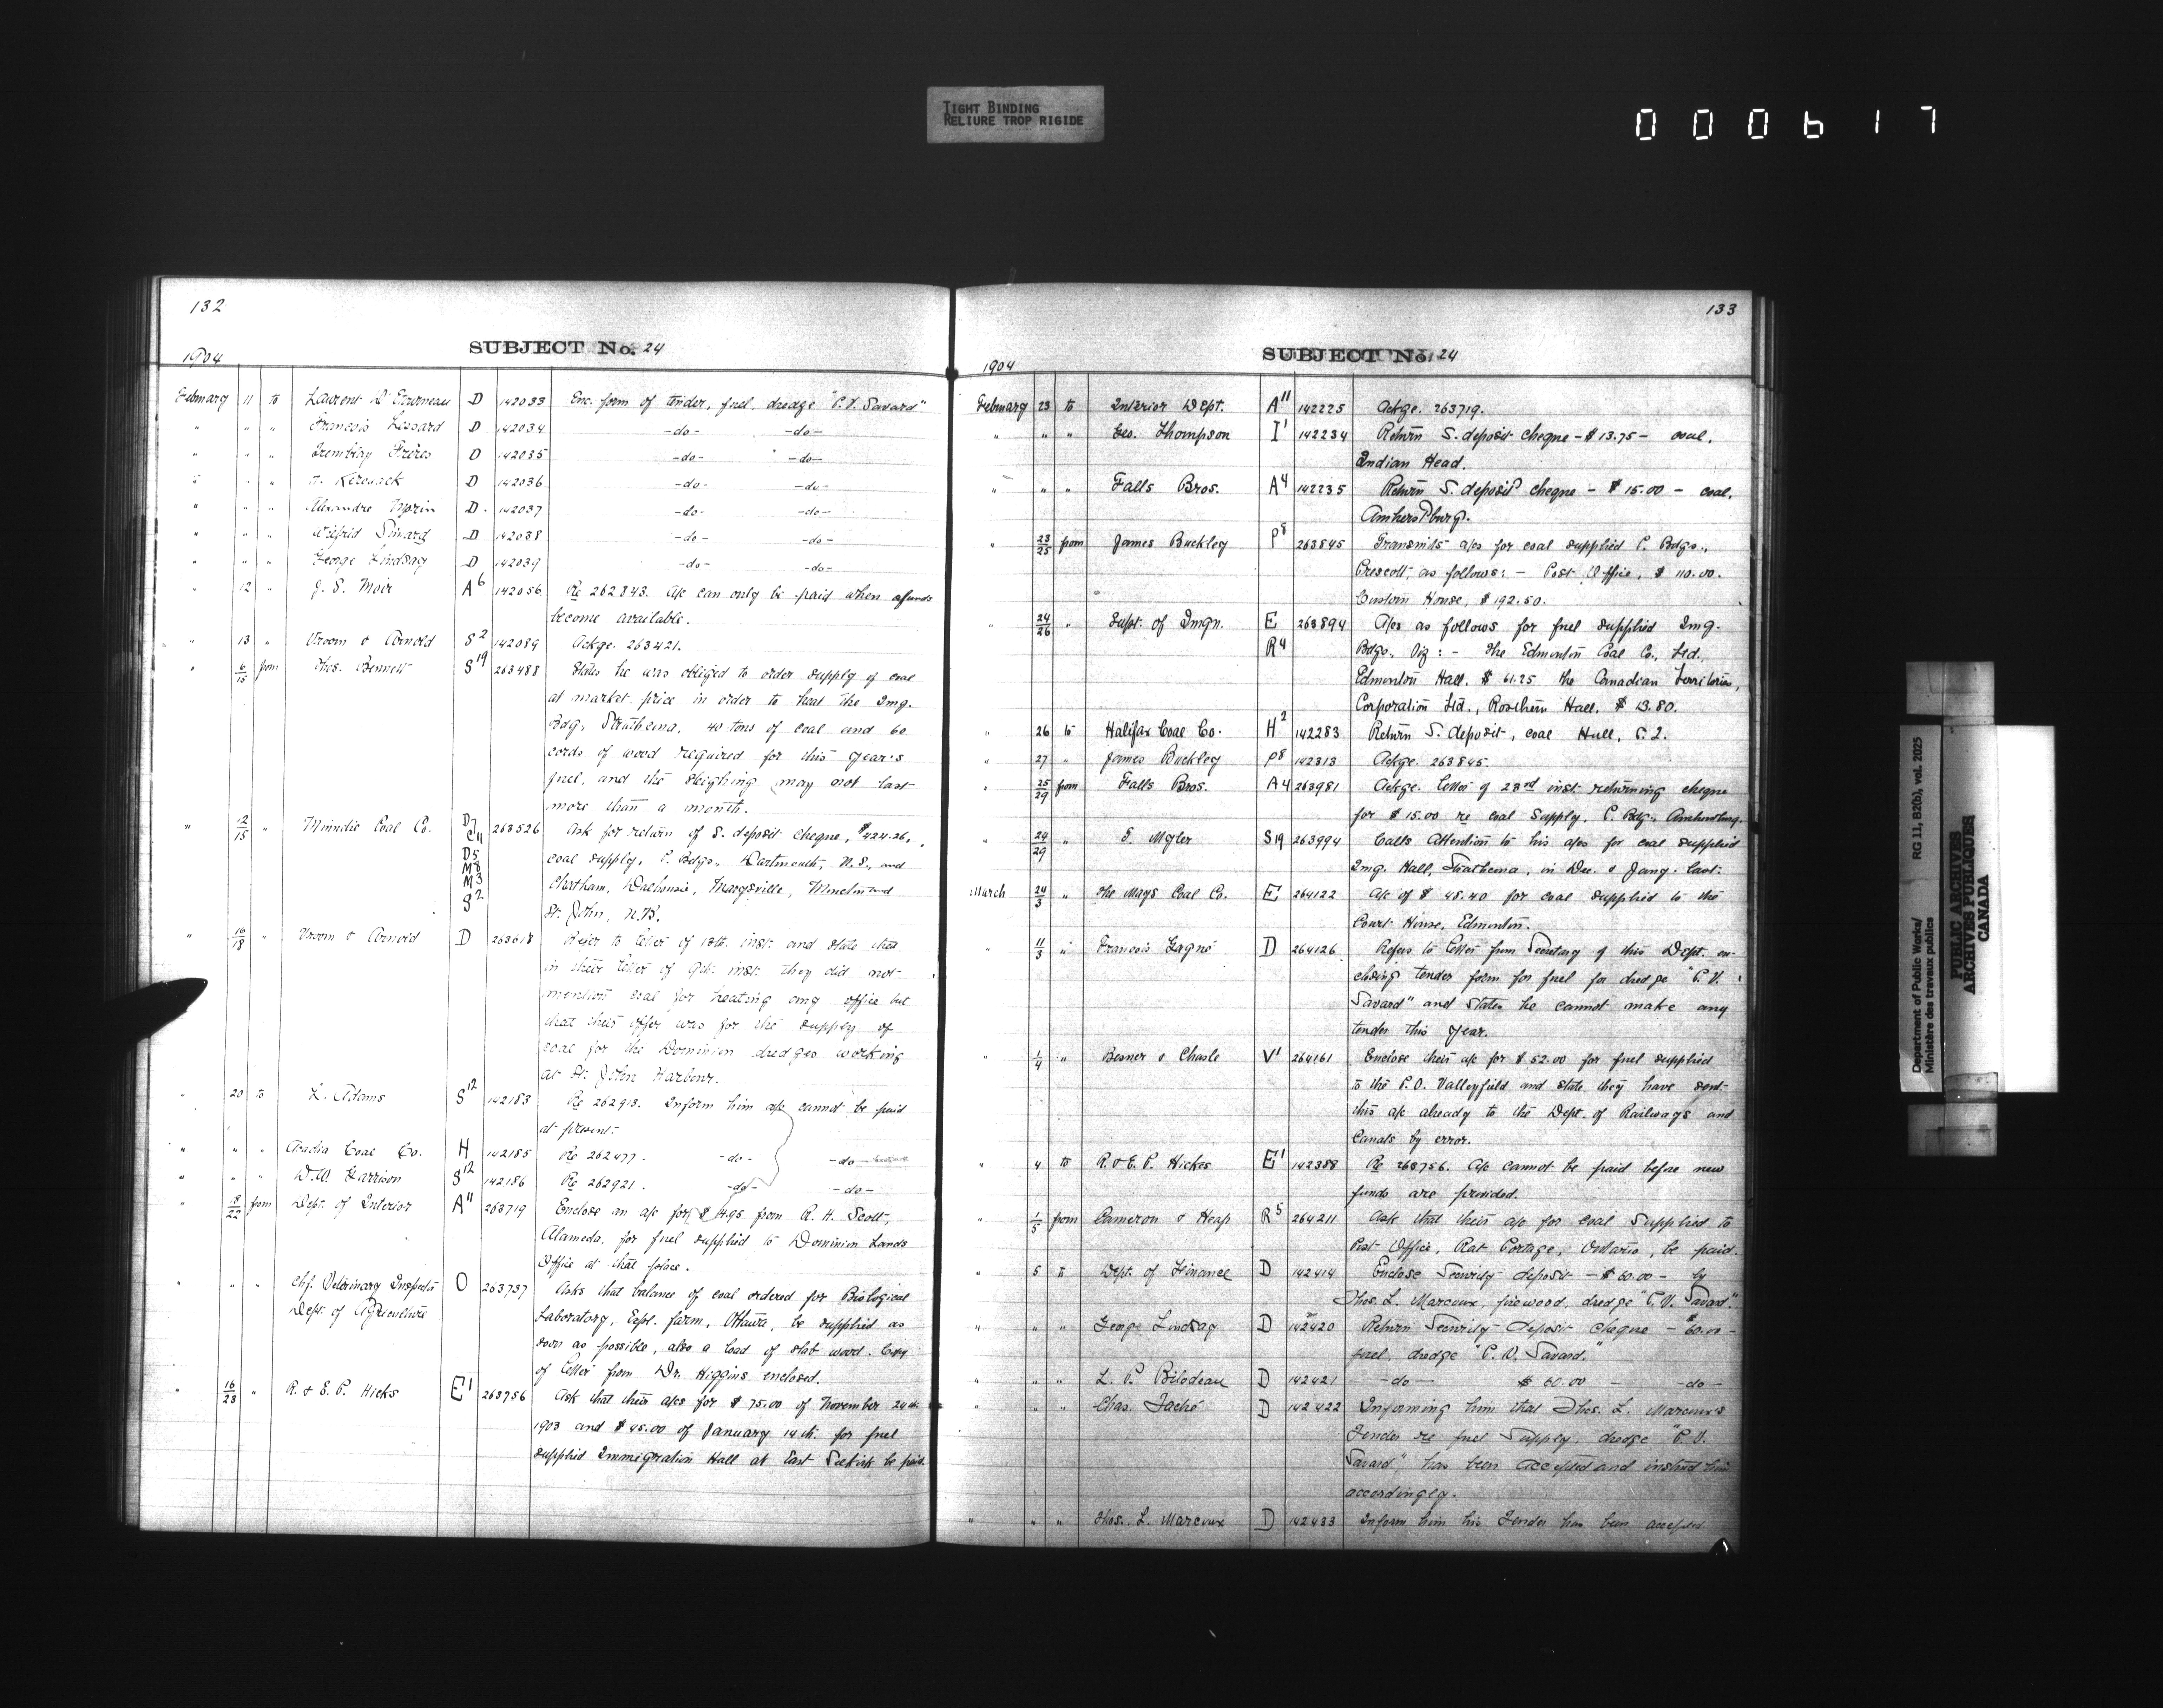 TIGHT BINDING
RELIURE TROP RIGIDE
000617
132
SUBJECT No. 24
1904
February 11 to Laurent D. D 142033 Enc. form of tender, fuel, dredge "P.V. Savard"
" " " François D 142034 -do- -do-
" " " Tremblay Frères D 142035 -do- -do-
" " " D 142036 -do- -do-
" " " Alexandre Morin D. 142037 -do- -do-
" " " Wilfrid Simard D 142038 -do- -do-
" " " George Lindsay D 142039 -do- -do-
" 12 " J. S. Moir A6 142056 Re 262843. A/c can only be paid when funds
become available.
" 13 " Vroom & Arnold S2 142089 Ackge. 263421.
" 6/15 from Thos. Bennett S19 263488 States he was obliged to order supply of coal
at market price in order to heat the Img.
Bdg, Strathcona, 40 tons of coal and 60
cords of wood required for this year's
fuel, and the sleighing may not last
more than a month.
" 12/15 " Minudie Coal Co. D7 263526 Ask for return of S. deposit cheque, $424.26,
C11
D5 coal supply, P. Bdgs., Dartmouth, N.S., and
M8
M3 Chatham, Dalhousie, Marysville, and
S2 St. John, N.B.
" 16/18 " Vroom & Arnold D 263618 Refer to letter of 13th. inst. and state that
in their letter of 9th. inst. they did not
mention coal for heating any office but
that their offer was for the supply of
coal for the Dominion dredges working
at St. John Harbour.
" 20 to L. Adams S12 142183 Re 262913. Inform him a/c cannot be paid
at present.
" " " Acadia Coal Co. H 142185 Re 262477. -do- -do-
" " " D.W. Garrison S12 142186 Re 262921. -do- -do-
" 18/22 from Dept. of Interior A11 263719 Enclose an a/c for $ 4.95 from R. H. Scott,
Alameda, for fuel supplied to Dominion Lands
Office at that place.
" " " Chf. Veterinary Inspector O 263737 Asks that balance of coal ordered for Biological
Dept. of Agriculture Laboratory, Expl. farm, Ottawa, be supplied as
soon as possible, also a load of slab wood. Copy
of letter from Dr. Higgins enclosed.
" 16/23 " R. & E. P. Hicks E1 263756 Ask that their a/cs for $ 75.00 of November 24th.
1903 and $ 45.00 of January 14th. for fuel
supplied Immigration Hall at East Selkirk be paid
133
SUBJECT No. 24
1904
February 23 to Interior Dept. A11 142225 Ackge. 263719.
" " " Geo. Thompson I1 142234 Return S. deposit cheque - $ 13.75 - coal,
Indian Head.
" " " Falls Bros. A4 142235 Return S. deposit cheque - $ 15.00 - coal,
Amherstburg.
" 23/25 from James Buckley P8 263845 Transmits a/cs for coal supplied P. Bdgs.,
Prescott, as follows: - Post Office, $ 110.00.
Custom House, $ 192.50.
" 24/26 " Supt. of Imgn. E 263894 A/cs as follows for fuel supplied Img.
R4 Bdgs, Viz: - The Edmonton Coal Co., Ltd.,
Edmonton Hall, $ 61.25 the Canadian Territories,
Corporation Ltd., Rosthern Hall, $ 13.80.
" 26 to Halifax Coal Co. H2 142283 Return S. deposit, coal Hull, P.Q.
" 27 " James Buckley P8 142313 Ackge. 263845.
" 25/29 from Falls Bros. A4 263981 Ackge. letter of 23rd inst. returning cheque
for $ 15.00 re coal supply, P. Bdg., Amherstburg.
" 24/29 " S. Myler S19 263994 Calls attention to his a/cs for coal supplied
Img. Hall, Strathcona, in Dec. & Jany. last.
March 24/3 " The Mays Coal Co. E 264122 A/c of $ 48.40 for coal supplied to the
Court House, Edmonton.
" 11/3 " François Gagné D 264126 Refers to letter from Secretary of this Dept. en-
closing tender form for fuel for dredge "P.V.
Savard" and states he cannot make any
tender this year.
" 1/4 " Besner & Chasle V1 264161 Enclose their a/c for $ 52.00 for fuel supplied
to the P.O. Valleyfield and state they have sent
this a/c already to the Dept. of Railways and
Canals by error.
" 4 to R. & E. P. Hickes E1 142388 Re 263756. A/c cannot be paid before new
funds are provided.
" 1/5 from Cameron & Heap R5 264211 Ask that their a/c for coal supplied to
Post Office, Rat Portage, Ontario, be paid.
" 5 to Dept. of Finance D 142414 Enclose Security deposit - $ 60.00 - by
Thos. L. Marcoux, firewood, dredge "P.V. Savard."
" " " George Lindsay D 142420 Return Security deposit cheque - $ 60.00 -
fuel, dredge "P. V. Savard."
" " " L. P. Bilodeau D 142421 -do- $ 60.00 - -do-
" " " Chas. Taché D 142422 Informing him that Thos. L. Marcoux's
Tender re fuel Supply, dredge "P. V.
Savard", has been accepted and instruct him
accordingly.
" " " Thos. L. Marcoux D 142433 Inform him his Tender has been accepted
Department of Public Works/
Ministère des travaux publics
RG 11, B2(b), vol. 2025
PUBLIC ARCHIVES
ARCHIVES PUBLIQUES
CANADA